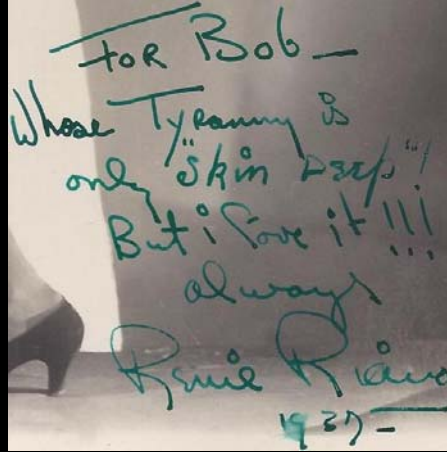 For Bob —
Whose Tyranny is
only "Skin Deep"!
But i Love it !!!
always
Renie Riano
1937 —